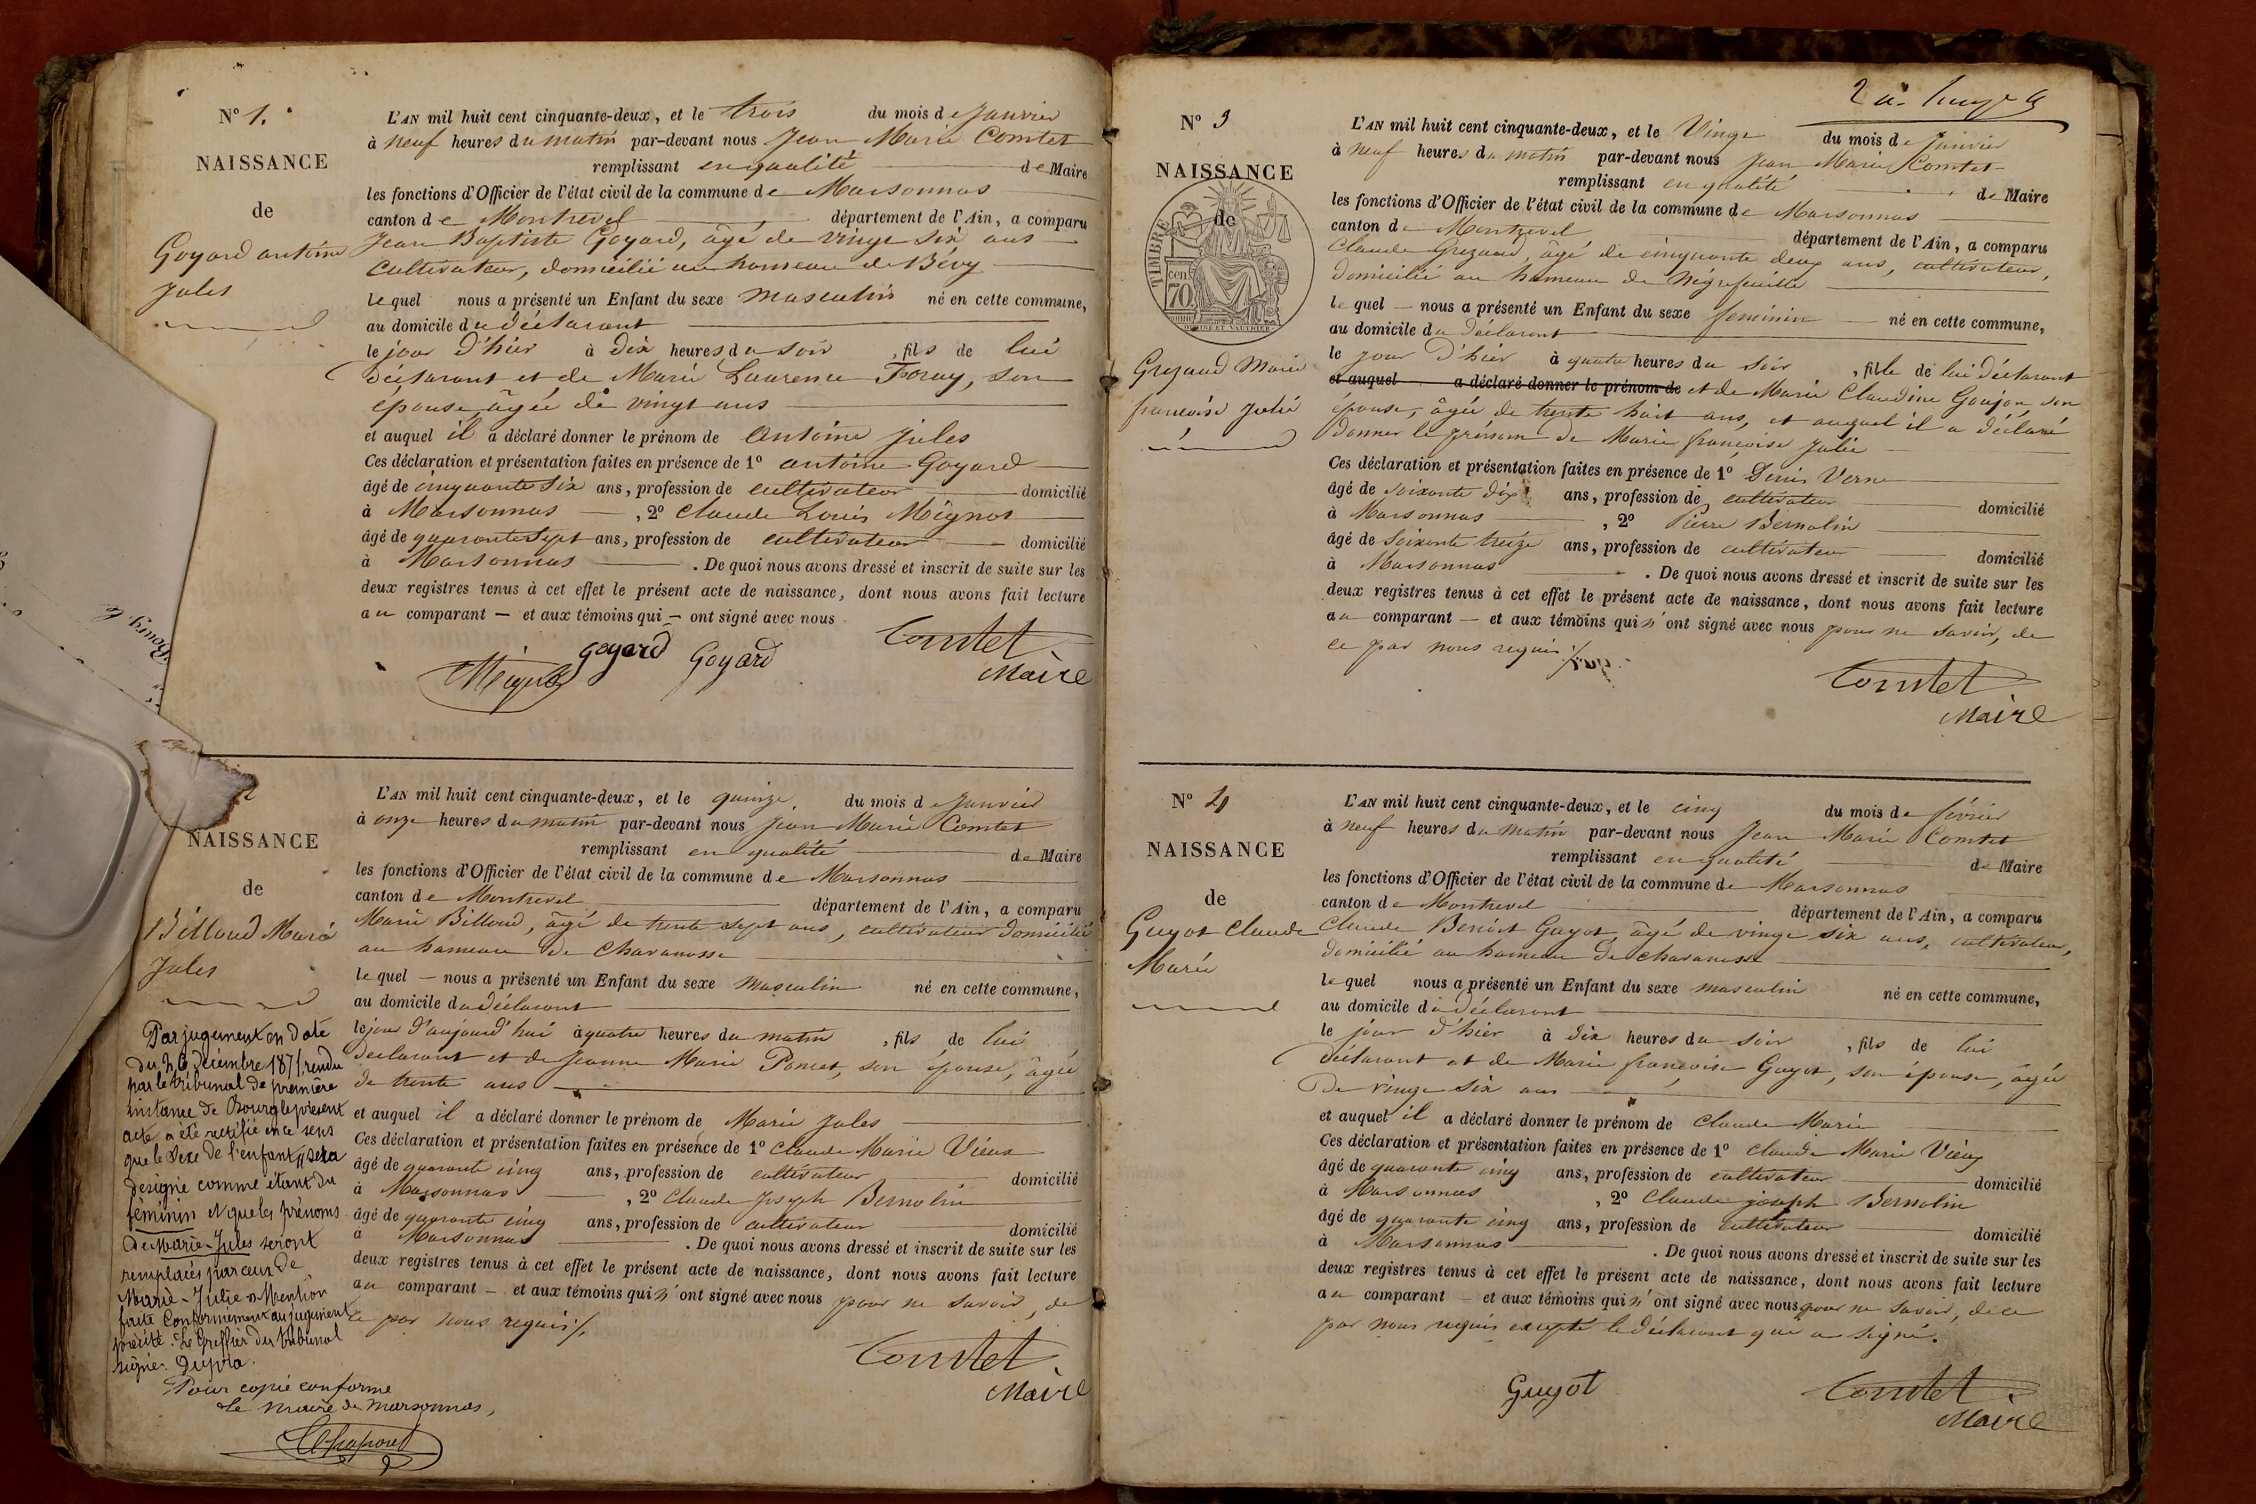 N° 1.
NAISSANCE
de
Goyard antoine
Jules
L'AN mil huit cent cinquante-deux, et le trois du mois de Janvier
à neuf heures du matin par-devant nous Jean Marie Comtet
remplissant en qualité de Maire
les fonctions d'Officier de l'état civil de la commune de Marsonnas
canton de Montrevel département de l'Ain, a comparu
Jean Baptiste Goyard, âgé de vingt six ans
cultivateur, domicilié au hameau de Bévy
lequel nous a présenté un Enfant du sexe masculin né en cette commune,
au domicile du déclarant
le jour d'hier à dix heures du soir, fils de lui
déclarant et de Marie Laurence Foray, son
épouse âgée de vingt ans
et auquel il a déclaré donner le prénom de antoine Jules
Ces déclaration et présentation faites en présence de 1° antoine Goyard
âgé de cinquante six ans, profession de cultivateur domicilié
à Marsonnas, 2° Claude Louis Mignot
âgé de quarante sept ans, profession de cultivateur domicilié
à Marsonnas. De quoi nous avons dressé et inscrit de suite sur les
deux registres tenus à cet effet le présent acte de naissance, dont nous avons fait lecture
au comparant — et aux témoins qui — ont signé avec nous
Mignot goyard Goyard Comtet
Maire
2
NAISSANCE
de
Billoud Marie
Jules
Par jugement en date
du 26 décembre 1871 rendu
par le tribunal de première
instance de Bourg le présent
acte a été rectifié en ce sens
que le Sexe de l'enfant y sera
désigné comme étant du
féminin et que les prénoms
de Marie-Jules seront
remplacés par ceux de
Marie-Julie » Mention
faite conformément au jugement
précité. Le Greffier du tribunal
signé: Dupra.
Pour copie conforme
Le maire de marsonnas,
L'AN mil huit cent cinquante-deux, et le quinze du mois de Janvier
à onze heures du matin par-devant nous Jean Marie Comtet
remplissant en qualité de Maire
les fonctions d'Officier de l'état civil de la commune de Marsonnas
canton de Montrevel département de l'Ain, a comparu
Marie Billoud, âgé de trente sept ans, cultivateur domicilié
au hameau de Chavanosse
lequel — nous a présenté un Enfant du sexe masculin né en cette commune,
au domicile du déclarant
le jour d'aujourd'hui à quatre heures du matin, fils de lui
déclarant et de Jeanne Marie Poncet, son épouse, âgée
de trente ans
et auquel il a déclaré donner le prénom de Marie Jules
Ces déclaration et présentation faites en présence de 1° Claude Marie Vieux
âgé de quarante cinq ans, profession de cultivateur domicilié
à Marsonnas, 2° Claude Joseph Bernolin
âgé de quarante cinq ans, profession de cultivateur domicilié
à Marsonnas. De quoi nous avons dressé et inscrit de suite sur les
deux registres tenus à cet effet le présent acte de naissance, dont nous avons fait lecture
au comparant — et aux témoins qui n'ont signé avec nous pour ne savoir, de
ce par nous requis /.
Comtet
Maire
N° 3
NAISSANCE
de
TIMBRE
cen
70.
Grezaud Marie
françoise Julie
L'AN mil huit cent cinquante-deux, et le Vingt du mois de Janvier
à neuf heures du matin par-devant nous Jean Marie Comtet
remplissant en qualité de Maire
les fonctions d'Officier de l'état civil de la commune de Marsonnas
canton de Montrevel département de l'Ain, a comparu
Claude Grezaud, âgé de cinquante deux ans, cultivateur,
domicilié au hameau de Négrefeuille
lequel — nous a présenté un Enfant du sexe féminin né en cette commune,
au domicile du déclarant
le jour d'hier à quatre heures du soir, fille de lui déclarant
et auquel a déclaré donner le prénom de et de Marie Claudine Goujon son
épouse, âgée de trente huit ans, et auquel il a déclaré
donner le prénom de Marie françoise Julie
Ces déclaration et présentation faites en présence de 1° Denis Verne
âgé de soixante dix ans, profession de cultivateur domicilié
à Marsonnas, 2° Pierre Bernolin
âgé de soixante treize ans, profession de cultivateur domicilié
à Marsonnas. De quoi nous avons dressé et inscrit de suite sur les
deux registres tenus à cet effet le présent acte de naissance, dont nous avons fait lecture
au comparant — et aux témoins qui n'ont signé avec nous pour ne savoir, de
ce par nous requis /.
Comtet
Maire
N° 4
NAISSANCE
de
Guyot Claude
Marie
L'AN mil huit cent cinquante-deux, et le cinq du mois de février
à neuf heures du matin par-devant nous Jean Marie Comtet
remplissant en qualité de Maire
les fonctions d'Officier de l'état civil de la commune de Marsonnas
canton de Montrevel département de l'Ain, a comparu
Claude Benoit Guyot, âgé de vingt six ans, cultivateur,
domicilié au hameau de Chavanosse
lequel nous a présenté un Enfant du sexe masculin né en cette commune,
au domicile du déclarant
le jour d'hier à dix heures du soir, fils de lui
déclarant et de Marie françoise Guyot, son épouse, âgée
de vingt six ans
et auquel il a déclaré donner le prénom de Claude Marie
Ces déclaration et présentation faites en présence de 1° Claude Marie Vieux
âgé de quarante cinq ans, profession de cultivateur domicilié
à Marsonnas, 2° Claude joseph Bernolin
âgé de quarante cinq ans, profession de cultivateur domicilié
à Marsonnas. De quoi nous avons dressé et inscrit de suite sur les
deux registres tenus à cet effet le présent acte de naissance, dont nous avons fait lecture
au comparant — et aux témoins qui n'ont signé avec nous pour ne savoir, de ce
par nous requis excepté le déclarant qui a signé.
Guyot Comtet
Maire